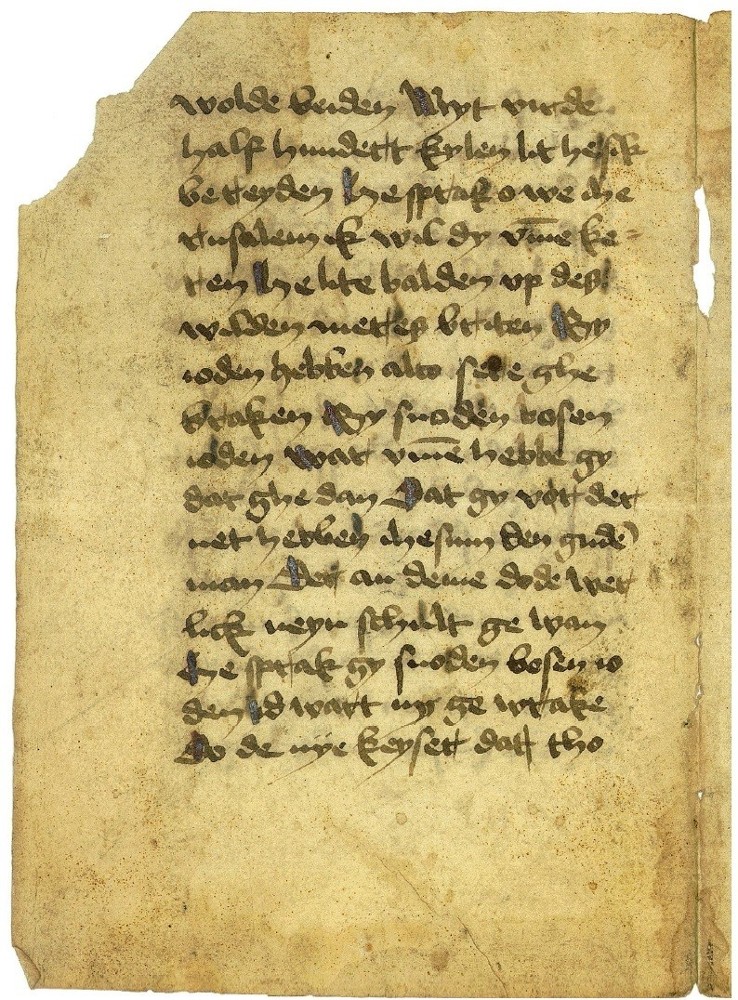 wolde beiden Myt virde
half hundert kylen lit he sik
bereyden he sprak owe ihe
rusalem ik wil dy vm̄e ke=
ren he lite balden vp des
wilden meres briten Gy
ioden hebben alto sere ghe
braken Gy snoden bosen
ioden wat vm̄e hebbe gy
dat ghe dan Dat gy vor der
uet hebben ihesum den gude
man Der an deme dode wer
lick neyn schult ge wan
he sprak gy snoden bosen io
den id wart ny ge wrake
Do de nýe keyser dat tho